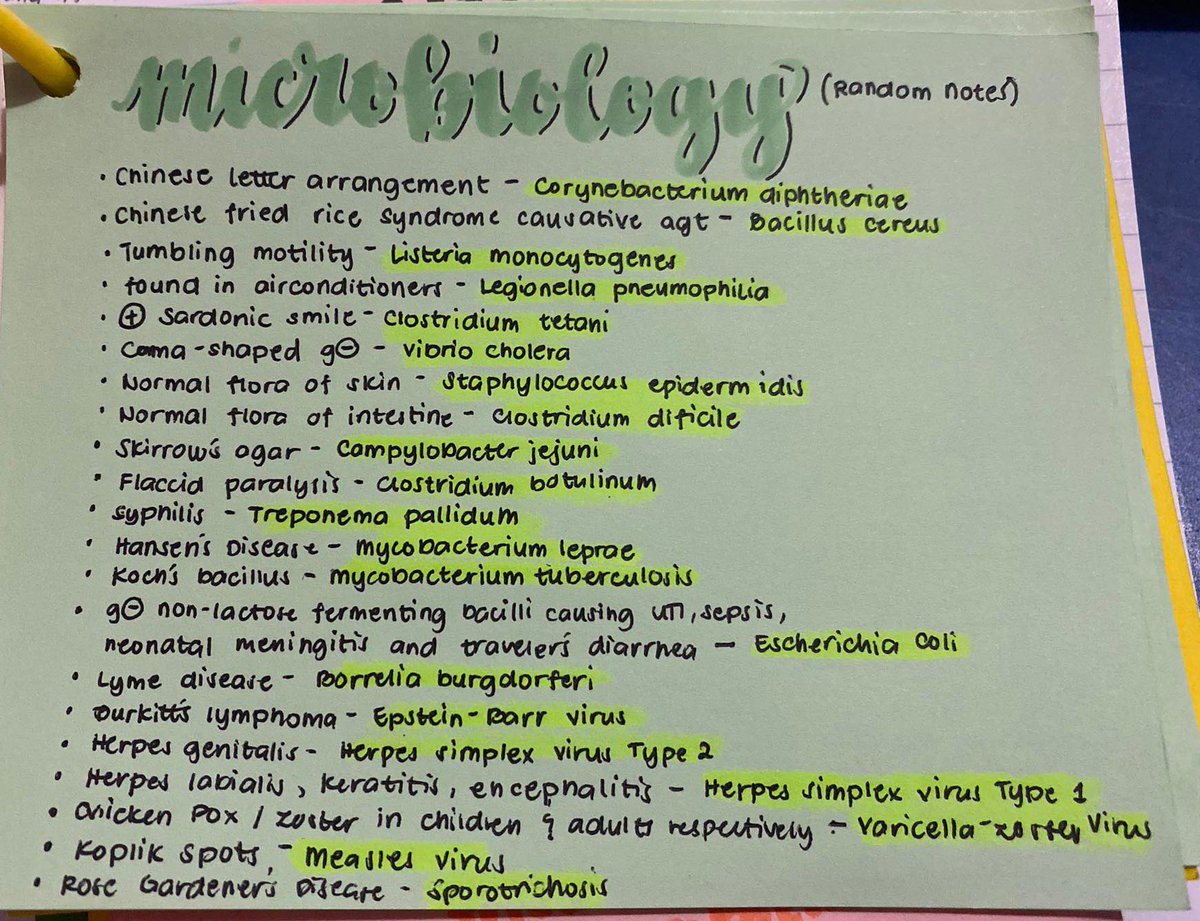 microbiology (Random notes)
• Chinese letter arrangement - Corynebacterium diphtheriae
• Chinese fried rice syndrome causative agt - Bacillus cereus
• Tumbling motility - Listeria monocytogenes
• found in airconditioners - Legionella pneumophilia
• ⊕ Sardonic smile - Clostridium tetani
• Coma-shaped g⊖ - Vibrio cholera
• Normal flora of skin - Staphylococcus epidermidis
• Normal flora of intestine - Clostridium dificile
• Skirrow's agar - Campylobacter jejuni
• Flaccid paralysis - Clostridium botulinum
• Syphilis - Treponema pallidum
• Hansen's Disease - mycobacterium leprae
• Koch's bacillus - mycobacterium tuberculosis
• g⊖ non-lactose fermenting bacilli causing UTI, sepsis,
neonatal meningitis and traveler's diarrhea - Escherichia Coli
• Lyme disease - Borrelia burgdorferi
• Burkitt's lymphoma - Epstein-Barr virus
• Herpes genitalis - Herpes simplex virus Type 2
• Herpes labialis, keratitis, encephalitis - Herpes simplex virus Type 1
• Chicken Pox / zoster in children & adults respectively - Varicella-zoster Virus
• Koplik spots, - Measles virus
• Rose Gardener's Disease - Sporotrichosis